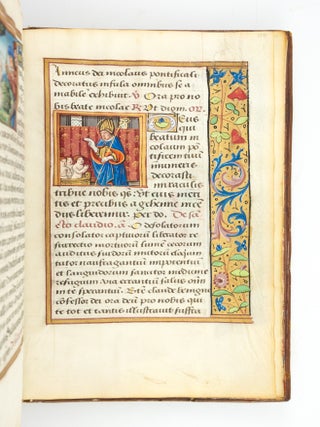 Amicus dei nicolaus pontificali
decoratus infula omnibus se a
mabile exhibuit ℣ Ora pro no
bis beate nicolae ℟ Ut digni OR
Deus qui
beatum ni
colaum pō
tificem tuū
decorasti
tribue nobis qs Ut eius meri
tis et precibus a gehenne incen
De san
cto claudio a O desolatorum
consolator captivorū liberator re
surrectio mortuorū lumen cecorum
auditus surdorū mutorū
tutor naufragantiū impotentiū
et languidorum sanator medicine
refugium via errantiū salus omni
um in te sperantiū Sancte claude benigne
confessor dei ora deum pro nobis
qui te tot et tantis illustravit